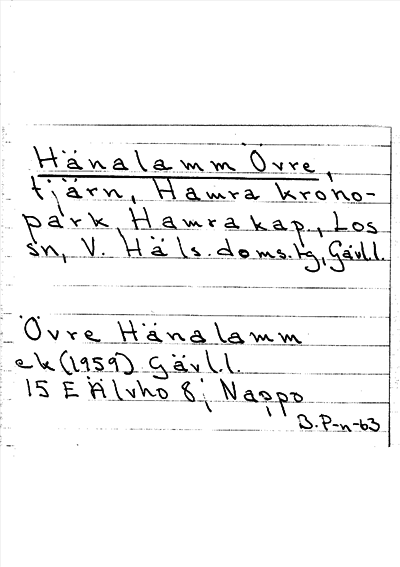 Hänalamm Övre,
tjärn, Hamra krono-
park, Hamra kap., Los
sn, V. Häls. doms.tg, Gävl.l.
Övre Hänalamm
ek (1959) Gävl.l.
15 E Älvho 8; Nappo
B.P-n-63